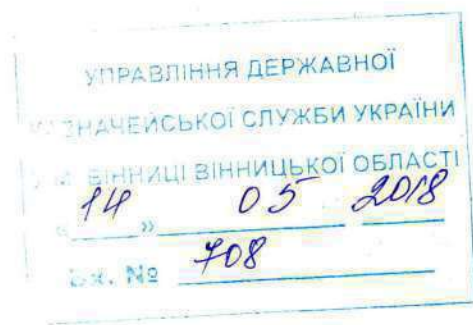 УПРАВЛІННЯ ДЕРЖАВНОЇ
КАЗНАЧЕЙСЬКОЇ СЛУЖБИ УКРАЇНИ
У М. ВІННИЦІ ВІННИЦЬКОЇ ОБЛАСТІ
« 14 » 05 2018
Вх. № 708